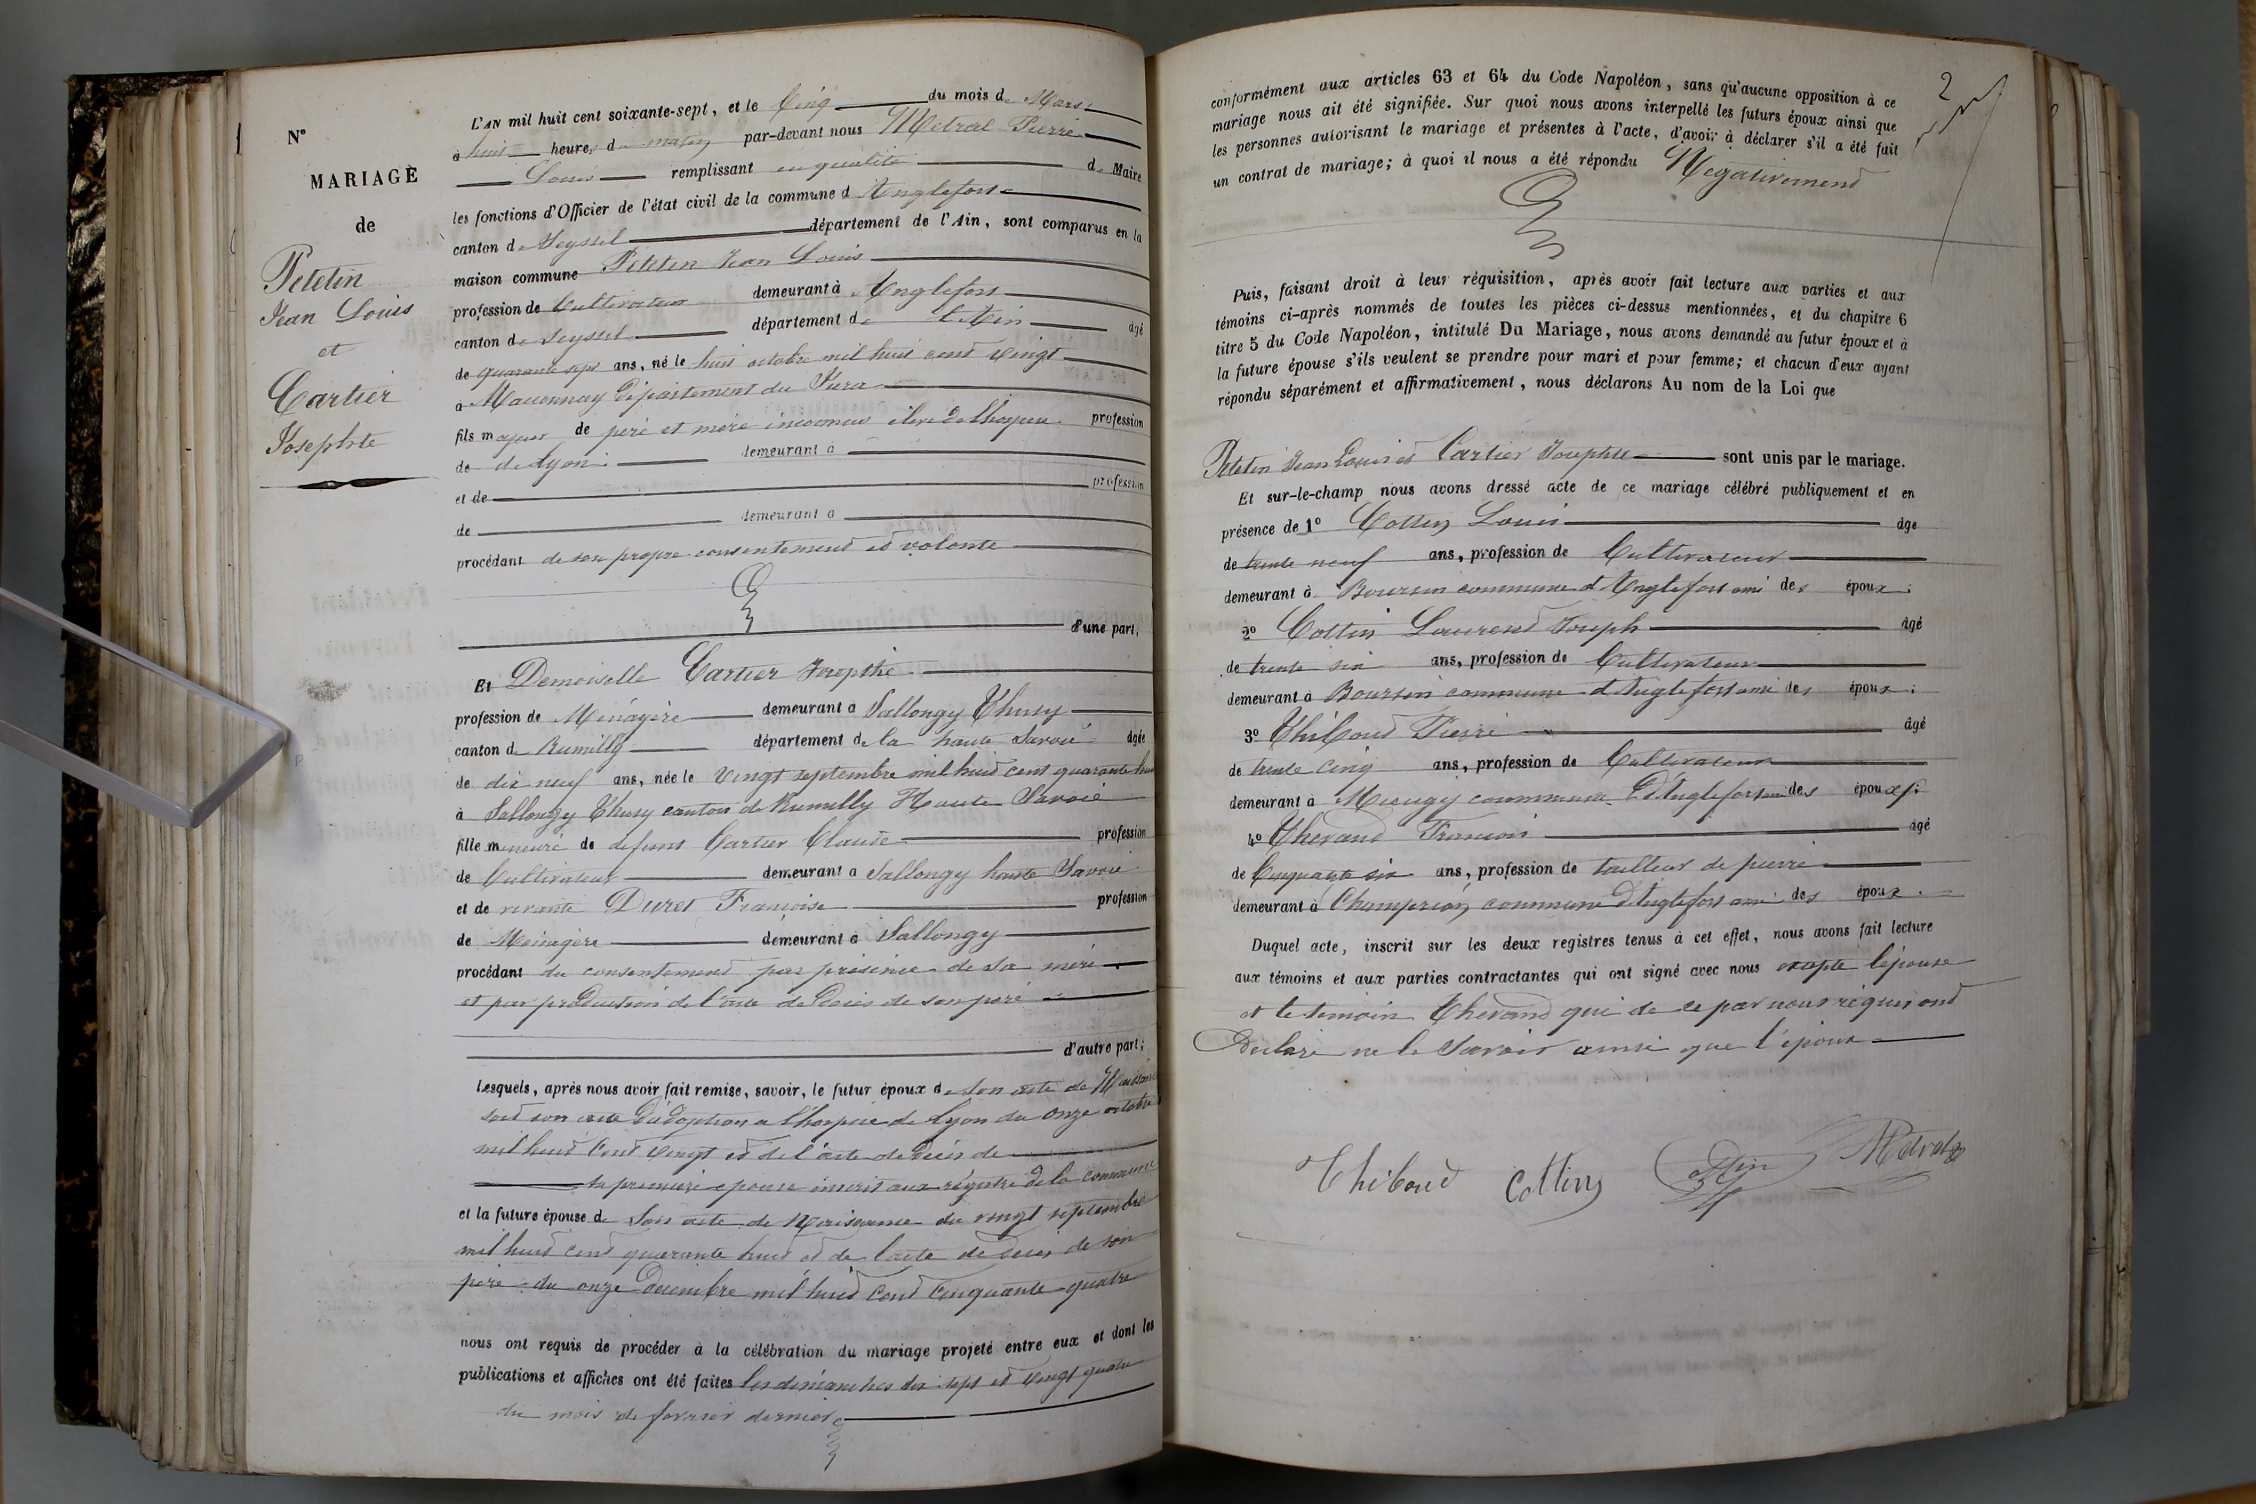 N°
MARIAGE
de
Petetin
Jean Louis
et
Cartier
Josephte
L'AN mil huit cent soixante-sept, et le Cinq du mois de Mars
à huit heures du matin par-devant nous Métral Pierre
Louis remplissant en qualité de Maire
les fonctions d'Officier de l'état civil de la commune d'Anglefort
canton de Seyssel département de l'Ain, sont comparus en la
maison commune Petetin Jean Louis
profession de Cultivateur demeurant à Anglefort
canton de Seyssel département de l'Ain âgé
de quarante sept ans, né le huit octobre mil huit cent vingt
à département du Jura
fils majeur de père et mère inconnus élève de l'hospice profession
de de Lyon demeurant à
et de profession
de demeurant à
procédant de son propre consentement et volonté
d'une part,
Et Demoiselle Cartier Josephte
profession de Ménagère demeurant à Sallongy Thusy
canton de Rumilly département de la haute Savoie âgée
de dix neuf ans, née le vingt septembre mil huit cent quarante huit
à Sallongy Thusy canton de Rumilly Haute Savoie
fille mineure de défunt Cartier Claude profession
de Cultivateur demeurant à Sallongy haute Savoie
et de vivante Duret Françoise profession
de Ménagère demeurant à Sallongy
procédant du consentement par présence de sa mère
et par production de l'acte de Décès de son père
d'autre part;
Lesquels, après nous avoir fait remise, savoir, le futur époux de son acte de Naissance
soit son acte d'adoption a l'hospice de Lyon du onze octobre
mil huit cent vingt et de l'acte de décès de
sa première épouse inscrit aux régistre de la commune
et la future épouse de son acte de Naissance du vingt septembre
mil huit cent quarante huit et de l'acte de décès de son
père du onze Décembre mil huit cent cinquante quatre
nous ont requis de procéder à la célébration du mariage projeté entre eux et dont les
publications et affiches ont été faites les dimanches dix sept et vingt quatre
du mois de février dernier
2
conformément aux articles 63 et 64 du Code Napoléon, sans qu'aucune opposition à ce
mariage nous ait été signifiée. Sur quoi nous avons interpellé les futurs époux ainsi que
les personnes autorisant le mariage et présentes à l'acte, d'avoir à déclarer s'il a été fait
un contrat de mariage; à quoi il nous a été répondu Négativement
Puis, faisant droit à leur réquisition, après avoir fait lecture aux parties et aux
témoins ci-après nommés de toutes les pièces ci-dessus mentionnées, et du chapitre 6
titre 5 du Code Napoléon, intitulé Du Mariage, nous avons demandé au futur époux et à
la future épouse s'ils veulent se prendre pour mari et pour femme; et chacun d'eux ayant
répondu séparément et affirmativement, nous déclarons Au nom de la Loi que
Petetin Jean Louis et Cartier Josephte sont unis par le mariage.
Et sur-le-champ nous avons dressé acte de ce mariage célébré publiquement et en
présence de 1° Cottin Louis âgé
de trente neuf ans, profession de Cultivateur
demeurant à Boursin commune d'Anglefort ami des époux;
2° Cottin Laurent Joseph âgé
de trente six ans, profession de Cultivateur
demeurant à Boursin commune d'Anglefort ami des époux;
3° Thiboud Pierre âgé
de trente cinq ans, profession de Cultivateur
demeurant à commune D'Anglefort ami des époux;
4° Thevand François âgé
de Cinquante six ans, profession de tailleur de pierre
demeurant à Champrion commune d'Anglefort ami des époux.
Duquel acte, inscrit sur les deux registres tenus à cet effet, nous avons fait lecture
aux témoins et aux parties contractantes qui ont signé avec nous excepté l'épouse
et le témoin Thevand qui de ce par nous réquis ont
Déclaré ne le savoir ainsi que l'époux
Thiboud Cottin Cottin Métral